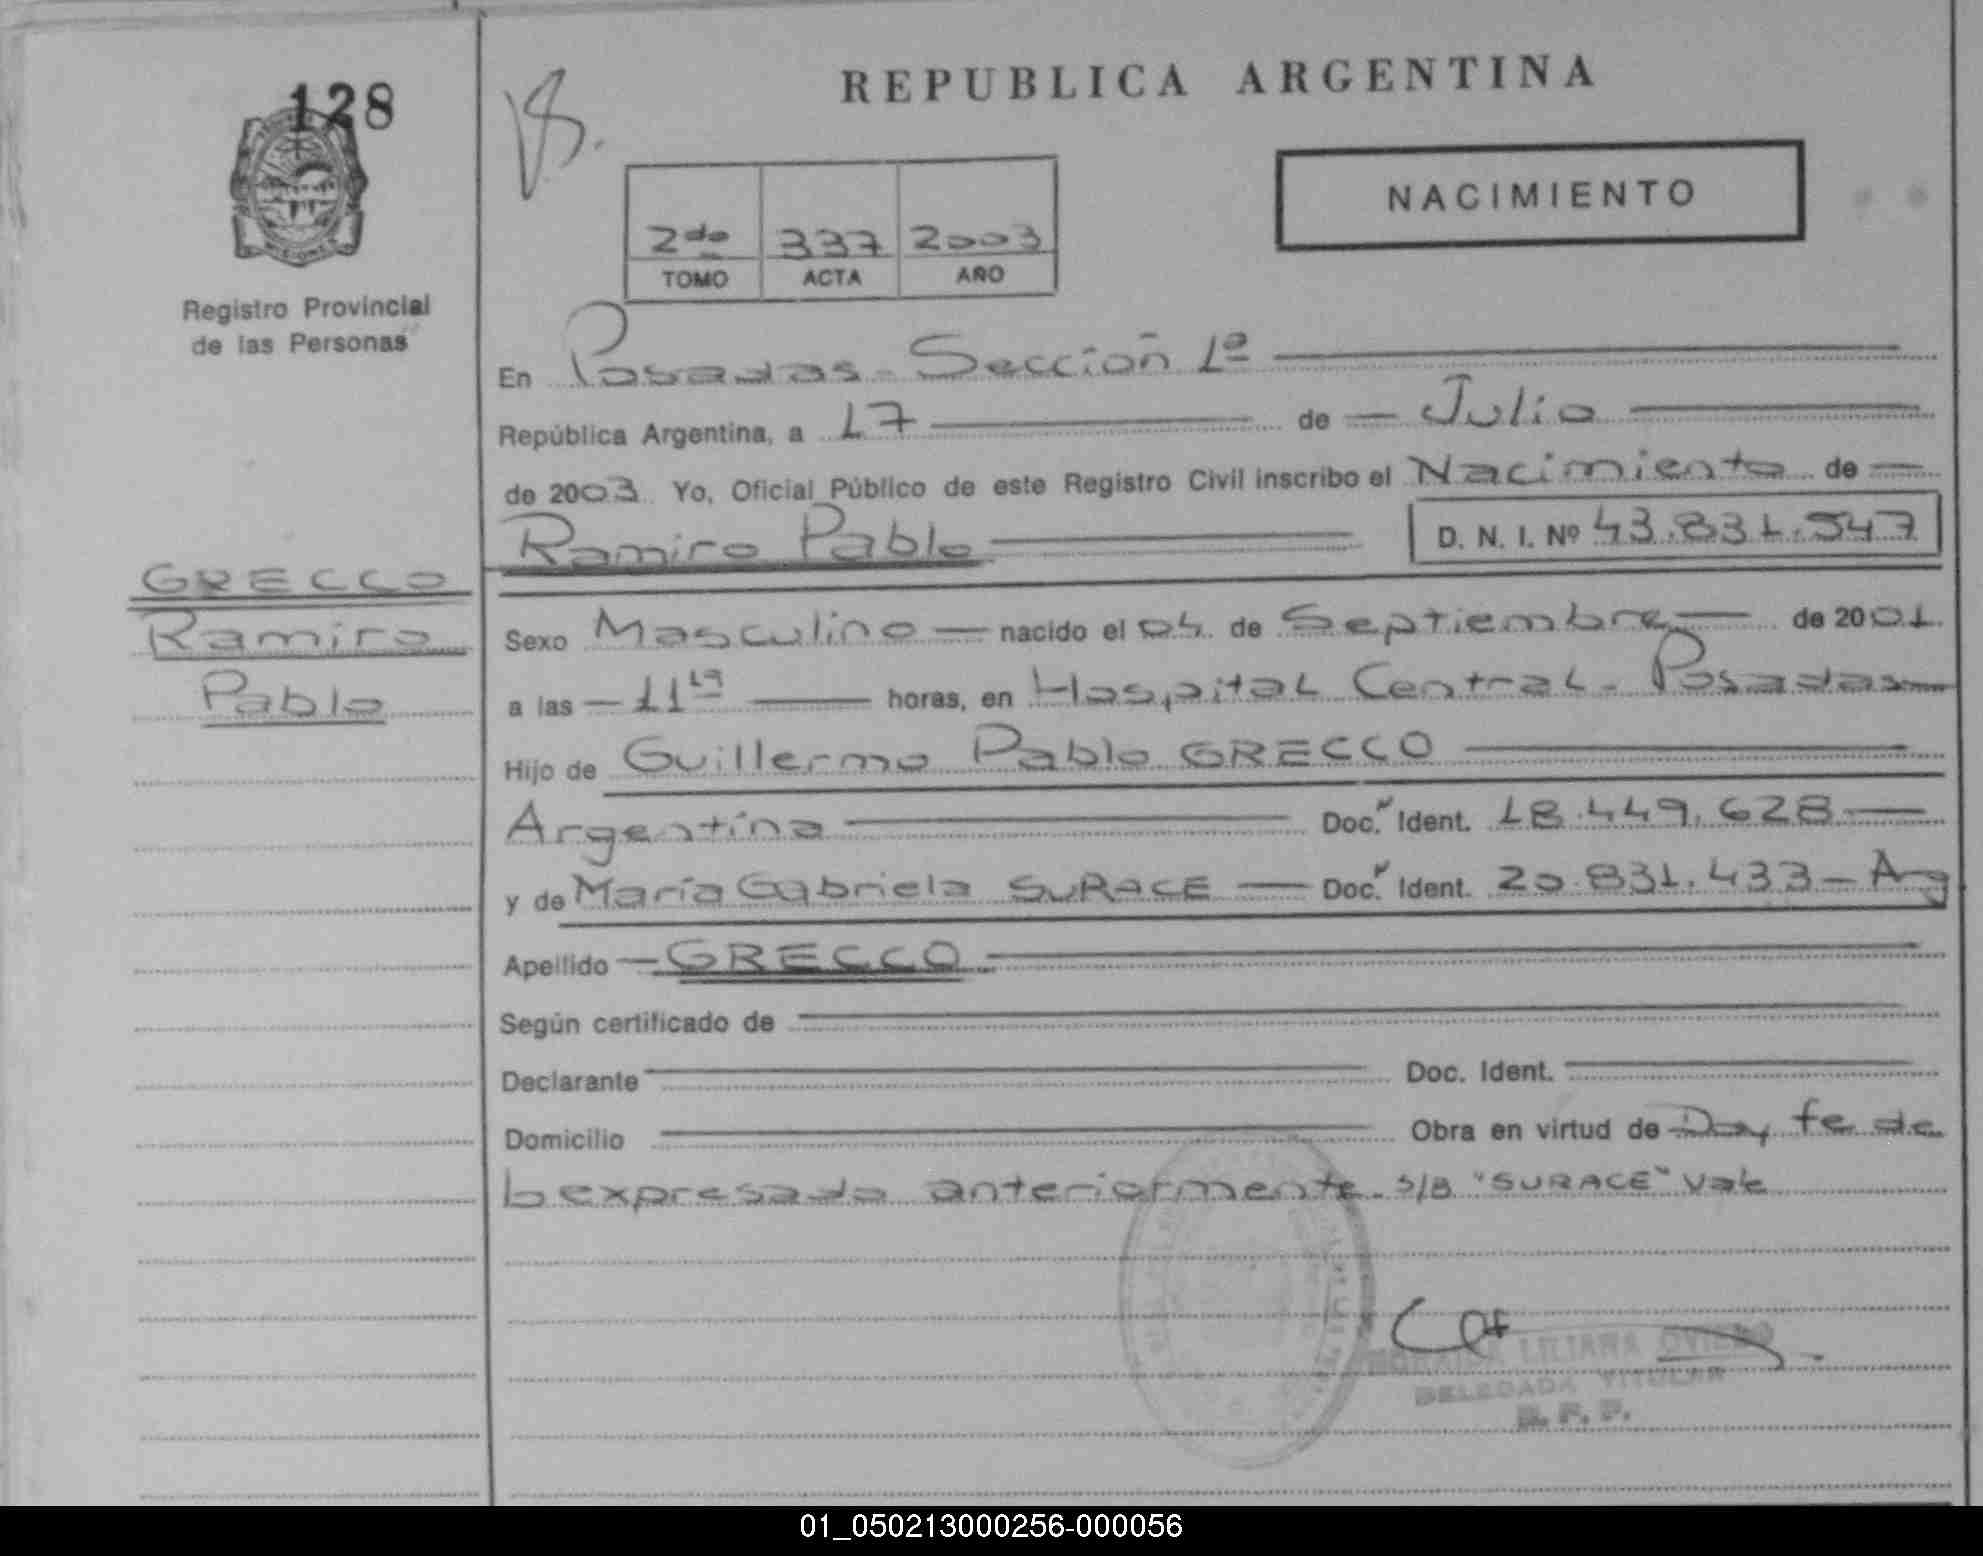 128
REPUBLICA ARGENTINA
NACIMIENTO
2do 337 2003
TOMO ACTA AÑO
Registro Provincial
de las Personas
En Posadas - Sección 1ª
República Argentina, a 17 de Julio
de 2003 Yo, Oficial Público de este Registro Civil inscribo el Nacimiento de
Ramiro Pablo D. N. I. Nº 43.831.547
GRECCO
Ramiro
Pablo
Sexo Masculino nacido el 04 de Septiembre de 2001
a las 11 horas, en Hospital Central - Posadas
Hijo de Guillermo Pablo GRECCO
Argentina Doc. Ident. 18.449.628
y de María Gabriela SURACE Doc. Ident. 20.831.433 - Arg
Apellido GRECCO
Según certificado de
Declarante Doc. Ident.
Domicilio Obra en virtud de Doy fe de
lo expresado anteriormente. S/B "SURACE" Vale
LILIANA OVIEDO
DELEGADA TITULAR
R. P. P.
01_050213000256-000056